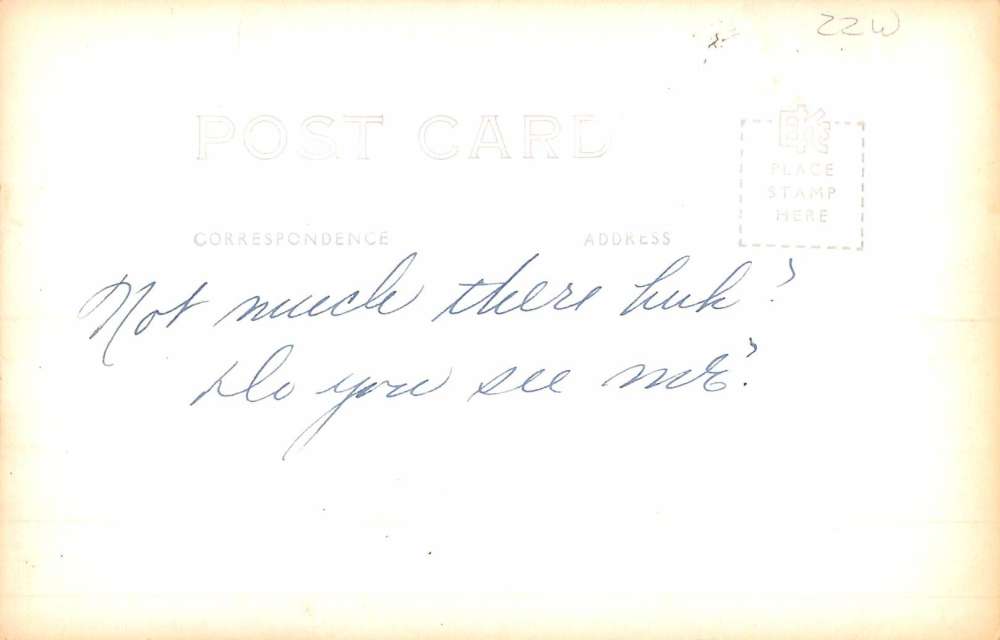 22W
POST CARD
EKC
PLACE
STAMP
HERE
CORRESPONDENCE ADDRESS
Not much there huh?
Do you see me?